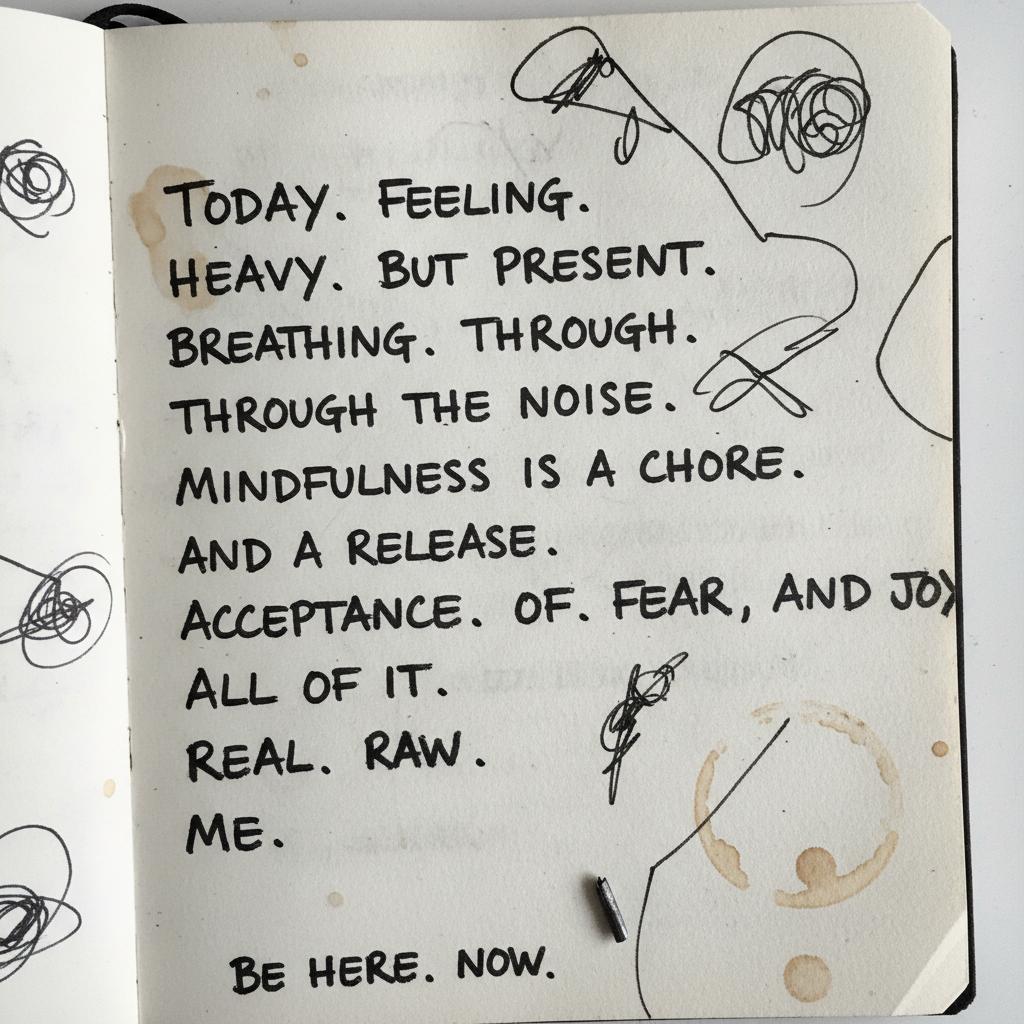 TODAY. FEELING.
HEAVY. BUT PRESENT.
BREATHING. THROUGH.
THROUGH THE NOISE.
MINDFULNESS IS A CHORE.
AND A RELEASE.
ACCEPTANCE. OF. FEAR, AND JOY
ALL OF IT.
REAL. RAW.
ME.
BE HERE. NOW.